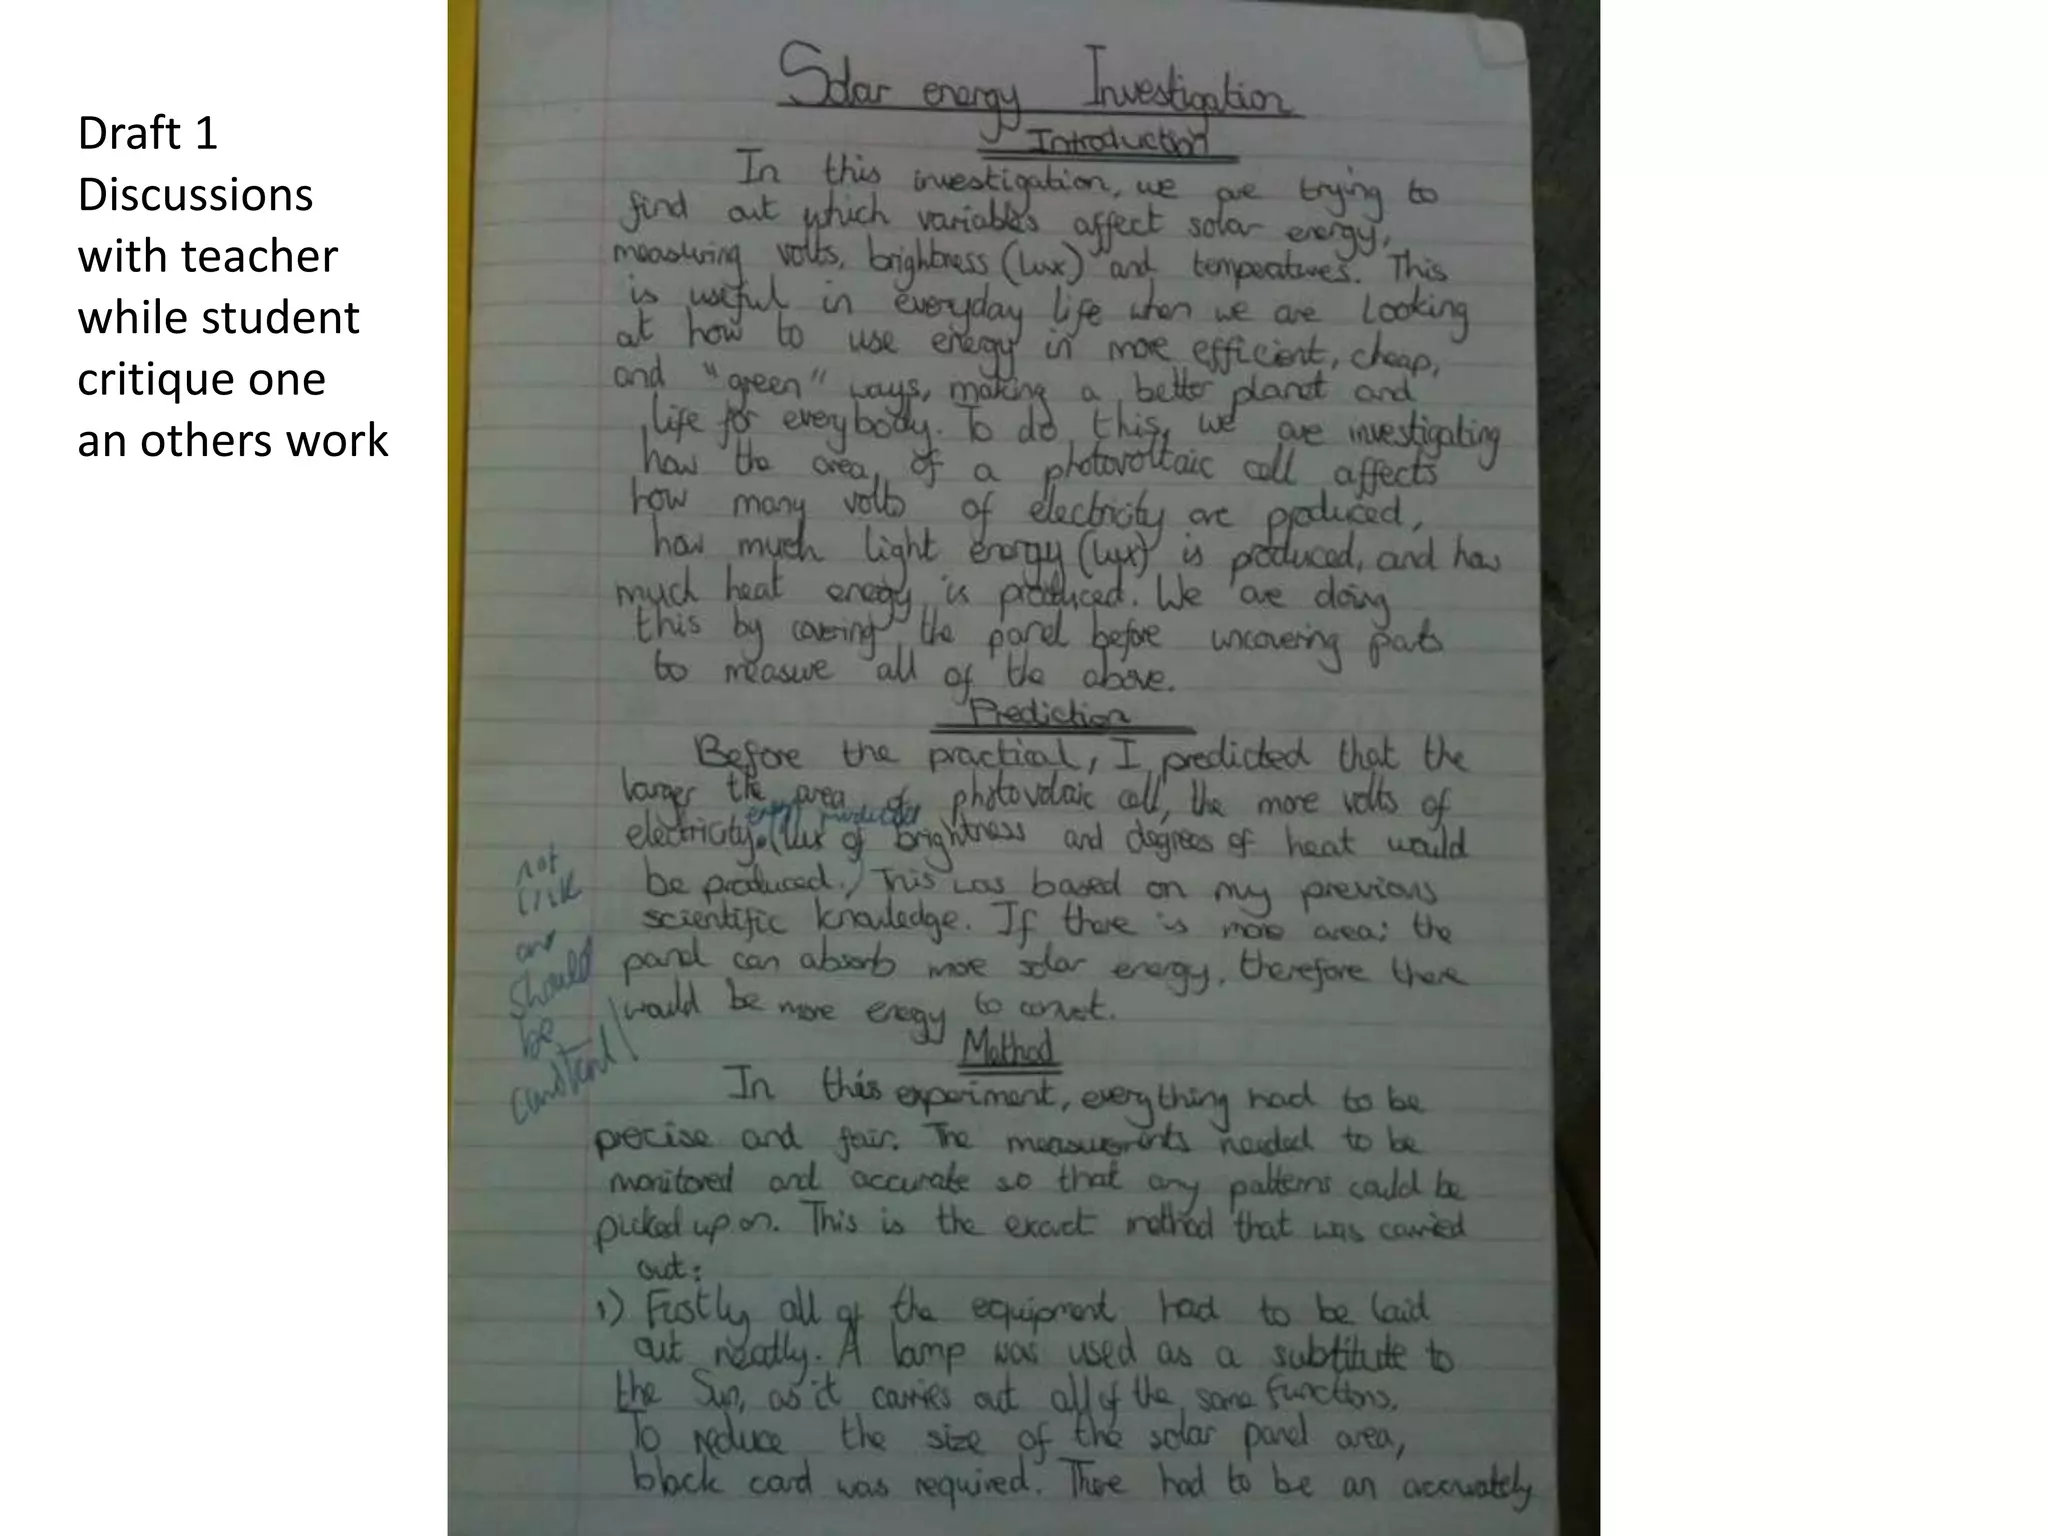 Draft 1
Discussions
with teacher
while student
critique one
an others work
Solar energy Investigation
Introduction
In this investigation, we are trying to
find out which variables affect solar energy,
measuring volts, brightness (lux) and temperatures. This
is useful in everyday life when we are looking
at how to use energy in more efficient, cheap,
and "green" ways, making a better planet and
life for everybody. To do this, we are investigating
how the area of a photovoltaic cell affects
how many volts of electricity are produced,
how much light energy (lux) is produced, and how
much heat energy is produced. We are doing
this by covering the panel before uncovering parts
to measure all of the above.
Prediction
Before the practical, I predicted that the
larger the area of photovolaic cell, the more volts of
energy production
electricity. (lux of brightness and degrees of heat would
be produced.) This was based on my previous
scientific knowledge. If there is more area; the
panel can absorb more solar energy, therefore there
would be more energy to convert.
not
link
and
should
be
constant!
Method
In this experiment, everything had to be
precise and fair. The measurements needed to be
monitored and accurate so that any patterns could be
picked up on. This is the exact method that was carried
out:
1) Firstly all of the equipment had to be laid
out neatly. A lamp was used as a substitute to
the Sun, as it carries out all of the same functions.
To reduce the size of the solar panel area,
black card was required. There had to be an accurately